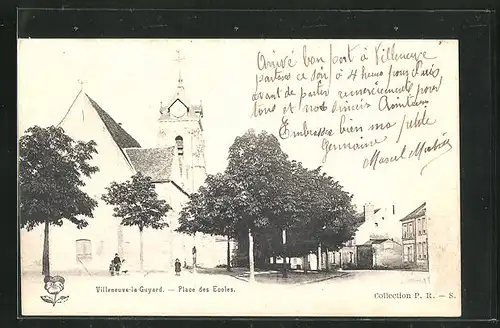 Arrivé bon port à Villeneuve
partons ce soir à 4 heures pour
avant de partir remerciements pour
tous et nos
Embrasse bien ma petite
Germaine
Marcel
Villeneuve-la-Guyard. — Place des Ecoles.
Collection P. R. — S.